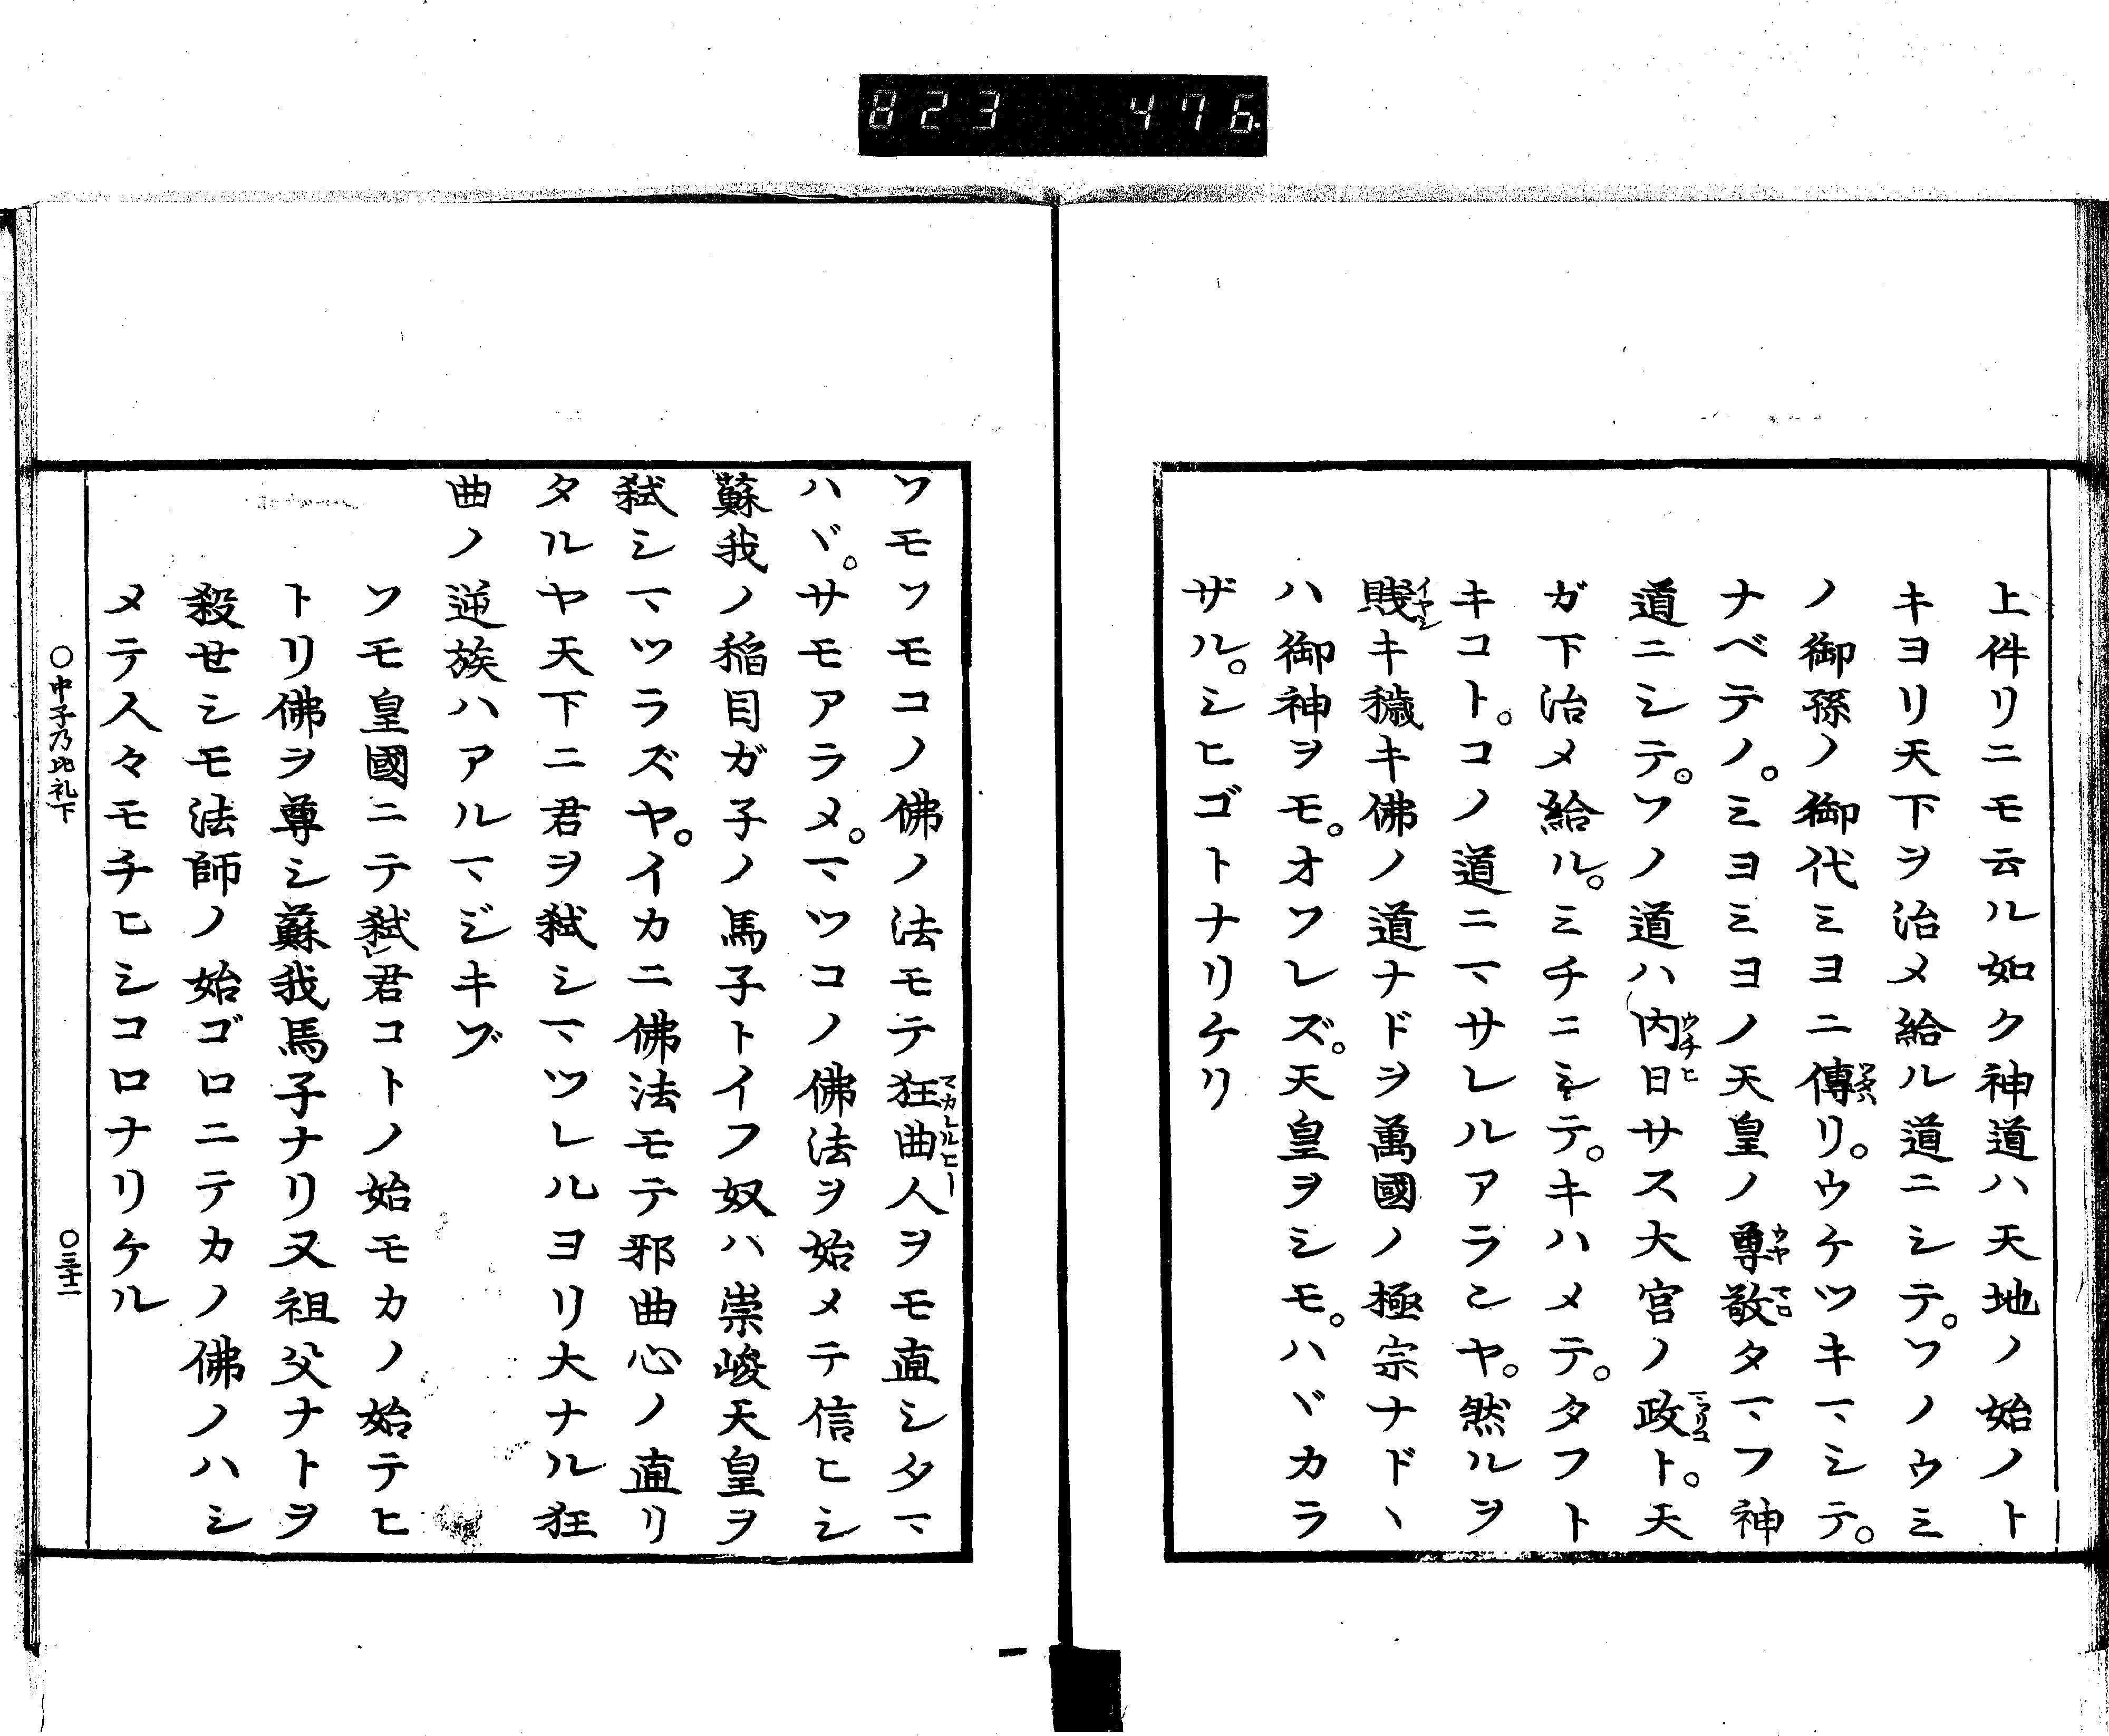 823 476.
上件リニモ云ル如ク神道ハ天地ノ始ノト
キヨリ天下ヲ治メ給ル道ニシテ。ソノウミ
ノ御孫ノ御代ミヨニ傳リ。ウケツキマシテ。
ナベテノ。ミヨミヨノ天皇ノ尊敬タマフ神
道ニシテ。ソノ道ハ内日サス大宮ノ政ト。天
ガ下治メ給ル。ミチニシテ。キハメテ。タフト
キコト。コノ道ニマサレルアランヤ。然ルヲ
賎キ穢キ佛ノ道ナドヲ萬國ノ極宗ナドヽ
ハ御神ヲモ。オソレズ。天皇ヲシモ。ハヾカラ
ザル。シヒゴトナリケリ
ソモソモコノ佛ノ法モテ狂曲人ヲモ直シタマ
ハヾ。サモアラメ。マツコノ佛法ヲ始メテ信ヒシ
蘇我ノ稲目ガ子ノ馬子トイフ奴ハ崇峻天皇ヲ
弑シマツラズヤ。イカニ佛法モテ邪曲心ノ直リ
タルヤ天下ニ君ヲ弑シマツレルヨリ大ナル狂
曲ノ逆族ハアルマジキヅ
ソモ皇國ニテ弑シ君コトノ始モカノ始テヒ
トリ佛ヲ尊シ蘇我馬子ナリ又祖父ナトヲ
殺せシモ法師ノ始ゴロニテカノ佛ノハシ
メテ入々モチヒシコロナリケル
○中子乃比礼下 ○三十二